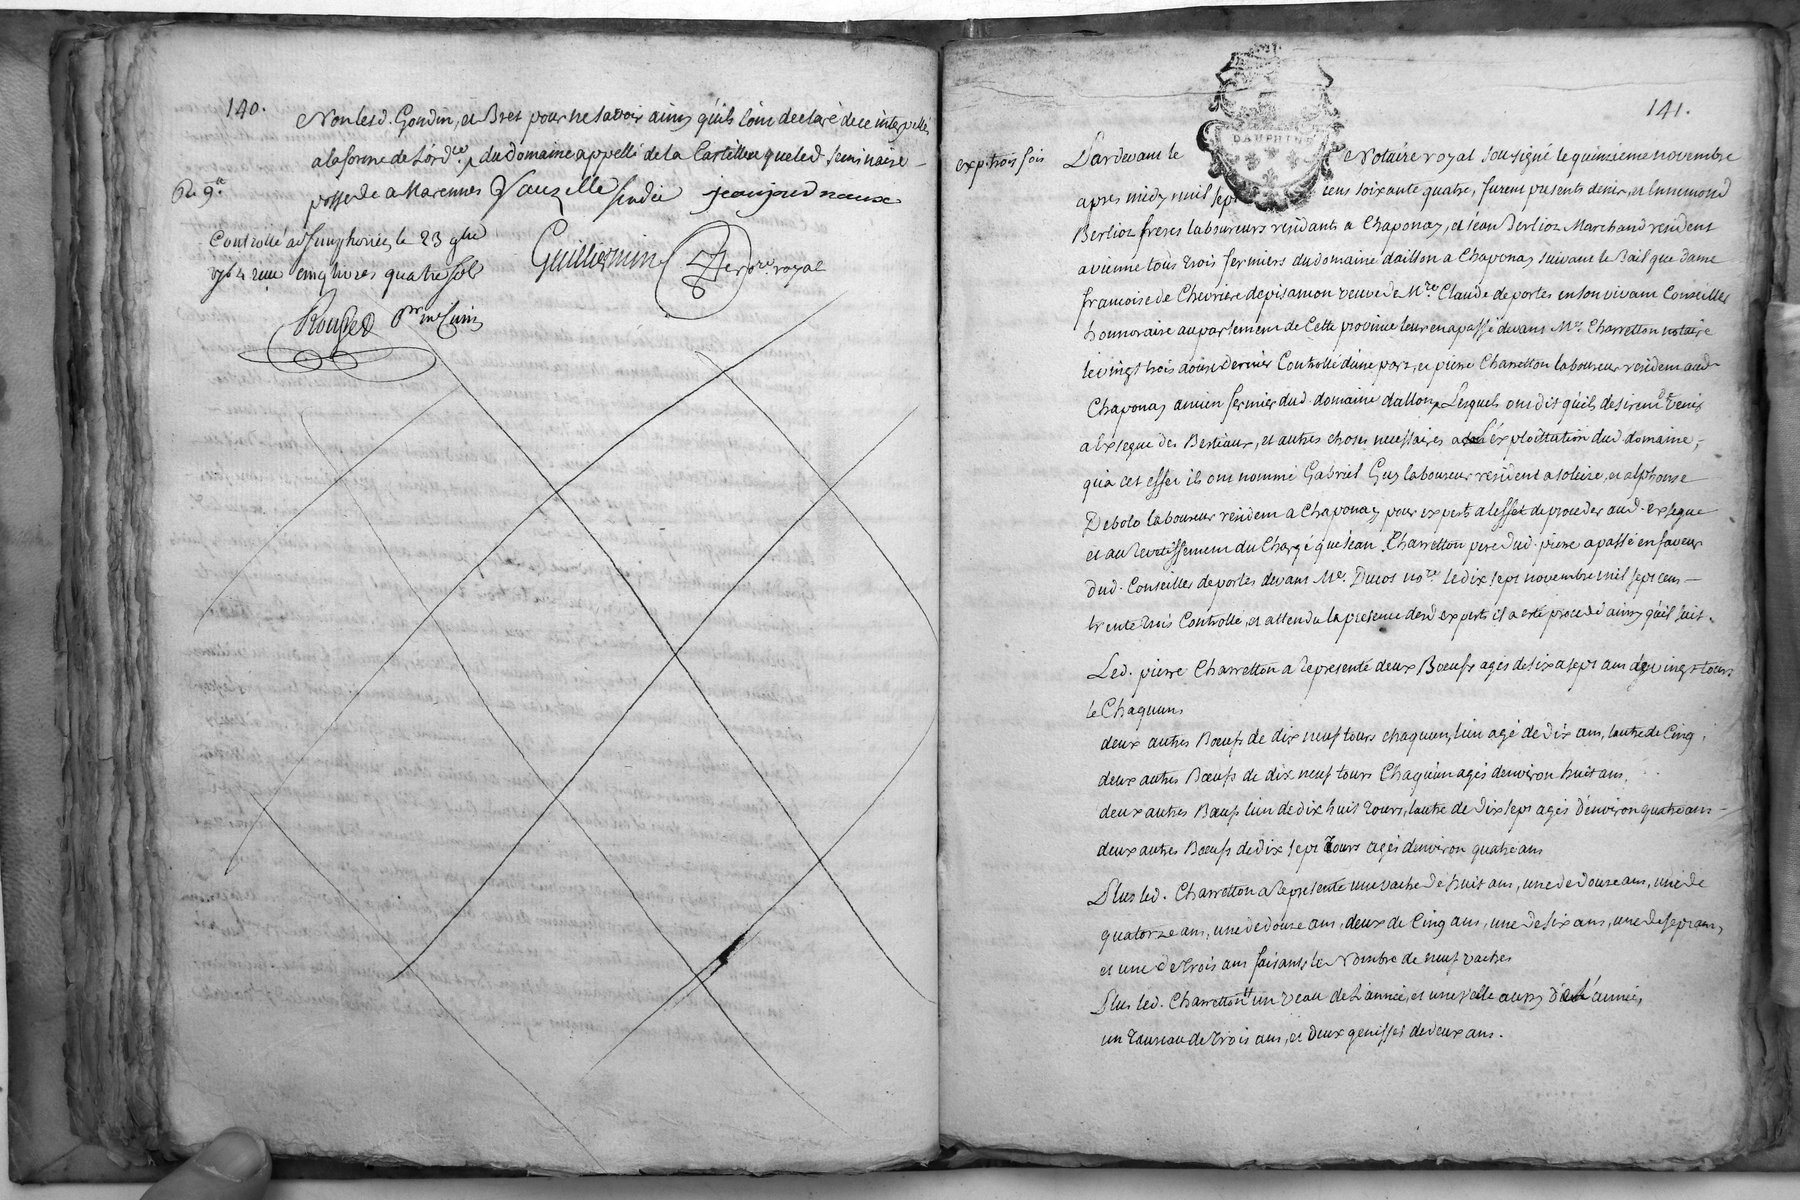 140.
Non lesd. Gondin, et Bret pour ne savoir ainsy qu'ils l'ont declaré de ce interpellés
a la forme de L'ord.ce. du domaine appellé de la Cartellere que led. seminaire
posse de a Marennes Vauzelle sindic jean jurdnaux
Controllé a st Simphorien, le 23 9bre
1764 reçu cinq livres quatre sols
Guillermin Not.re royal
Rouged
141.
exp. trois fois
Pardevant le Notaire royal soussigné le quinsieme novembre
apres midy mil sept cens soixante quatre, furent presents denis, et Ennemond
Berlioz freres laboureurs residants a Chaponay, et jean Berlioz Marchand resident
a vienne tous trois fermiers du domaine d'aillon a Chaponay suivant le Bail que dame
francoise de Chevriere de pisamon veuve de Mre. Claude de portes en son vivant Conseiller
honnoraire au parlement de Cette province leur en a passé devant Me. Charretton notaire
le vingt trois aoust dernier Controllé d'une part, et pierre Charretton laboureur resident aud.
Chaponay ancien fermier dud. domaine d'allon, Lesquels ont dit qu'ils desirent venir
a l'exsegue des Bestiaux, et autres choses necessaires a l'exploittation dud. domaine,
qu'a cet effet ils ont nommé Gabriel Guy laboureur resident a solaise, et alphonse
Debolo laboureur resident a Chaponay pour experts a l'effet de proceder aud. exsegue
et au revetissement du Chargé que jean Charretton pere dud. pierre a passé en faveur
dud. Conseiller de portes devant Me. Ducos no.re le dix sept novembre mil sept cens
trente trois Controllé, et attendu la presence desd. experts il a eté procedé ainsy qu'il suit.
Led. pierre Charretton a representé deux Bœufs agés de six a sept ans de vingt tours
le Chaquun,
deux autres Bœufs de dix neuf tours chaquun, l'un agé de dix ans, l'autre de Cinq,
deux autres Bœufs de dix neuf tours Chaquun agés d'environ huit ans,
deux autres Bœufs l'un de dix huit tours, l'autre de dix sept agés d'environ quatre ans
deux autres Bœufs de dix sept tours agés d'environ quatre ans
Plus led. Charretton a representé une vache de huit ans, une de douze ans, une de
quatorze ans, une de douze ans, deux de Cinq ans, une de six ans, une de sept ans,
et une de trois ans faisants le Nombre de neuf vaches
Plus led. Charretton un veau de L'année, et une velle aussy de L'année,
un taureau de trois ans, et deux genisses de deux ans.
DAUPHINÉ